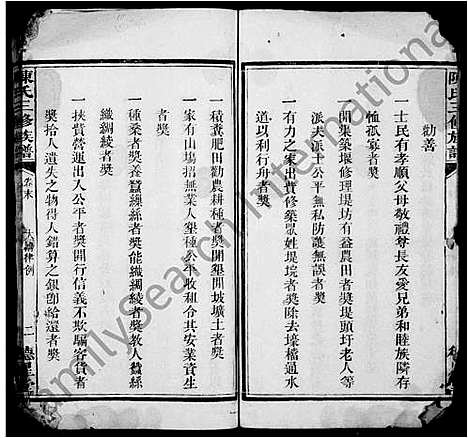 勸善
一士民有孝順父母敬禮尊長友愛兄弟和睦族隣存
恤孤寡者奬
一開集築堰修理堤坊有益農田者奬堤頭圩老人等
派夫派土公平無私防護無誤者奬
一有力之家出貲修築衆姓堤垸者奬除去壕檔通水
道以利行舟者奬
一積糞肥田勸農耕種者奬開墾閒坡壙土者奬
一家有山塲招無業人墾種公平收租令其安業資生
者奬
一種桑者奬養蠶繅絲者奬能織綢綾者奬教人蠶絲
織綢綾者奬
一挾貲營運出入公平者奬開行信義不欺騙客貲者
奬拾人遺失之物得人錯算之銀卽給還者奬
陳氏三修族譜
卷末
大淸律例
二
陳氏三修族譜
FamilySearch International